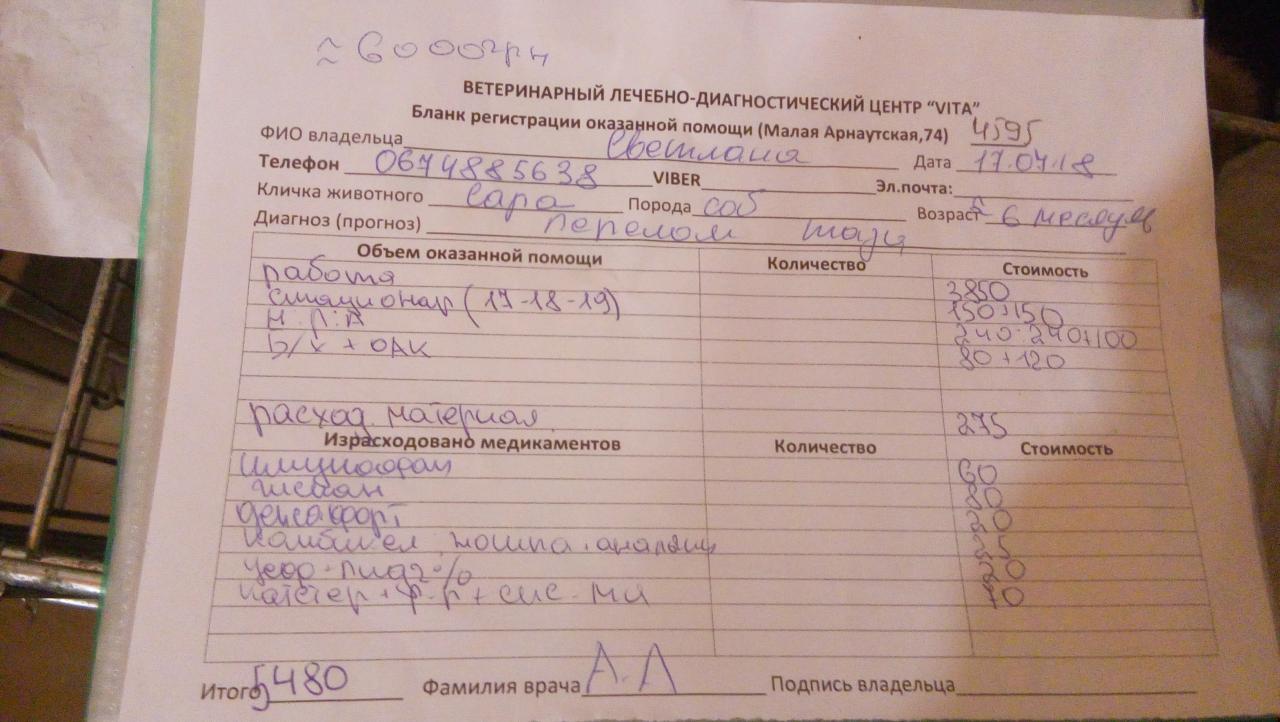 ≈ 6000грн
ВЕТЕРИНАРНЫЙ ЛЕЧЕБНО-ДИАГНОСТИЧЕСКИЙ ЦЕНТР “VITA”
Бланк регистрации оказанной помощи (Малая Арнаутская,74) 4595
ФИО владельца Светлана Дата 17.04.18
Телефон 0674885638 VIBER Эл.почта:
Кличка животного Сара Порода соб Возраст 6 месяцев
Диагноз (прогноз) перелом таза
Объем оказанной помощи Количество Стоимость
работа 3850
стационар (17-18-19) 150+150
240+240+100
Б/х + ОАК 80+120
расход. материал 275
Израсходовано медикаментов Количество Стоимость
имунофан 60
20
дексафорт 20
ношпа 25
катетер + ф-р + сис-ма 70
Итого 5480 Фамилия врача А.А Подпись владельца